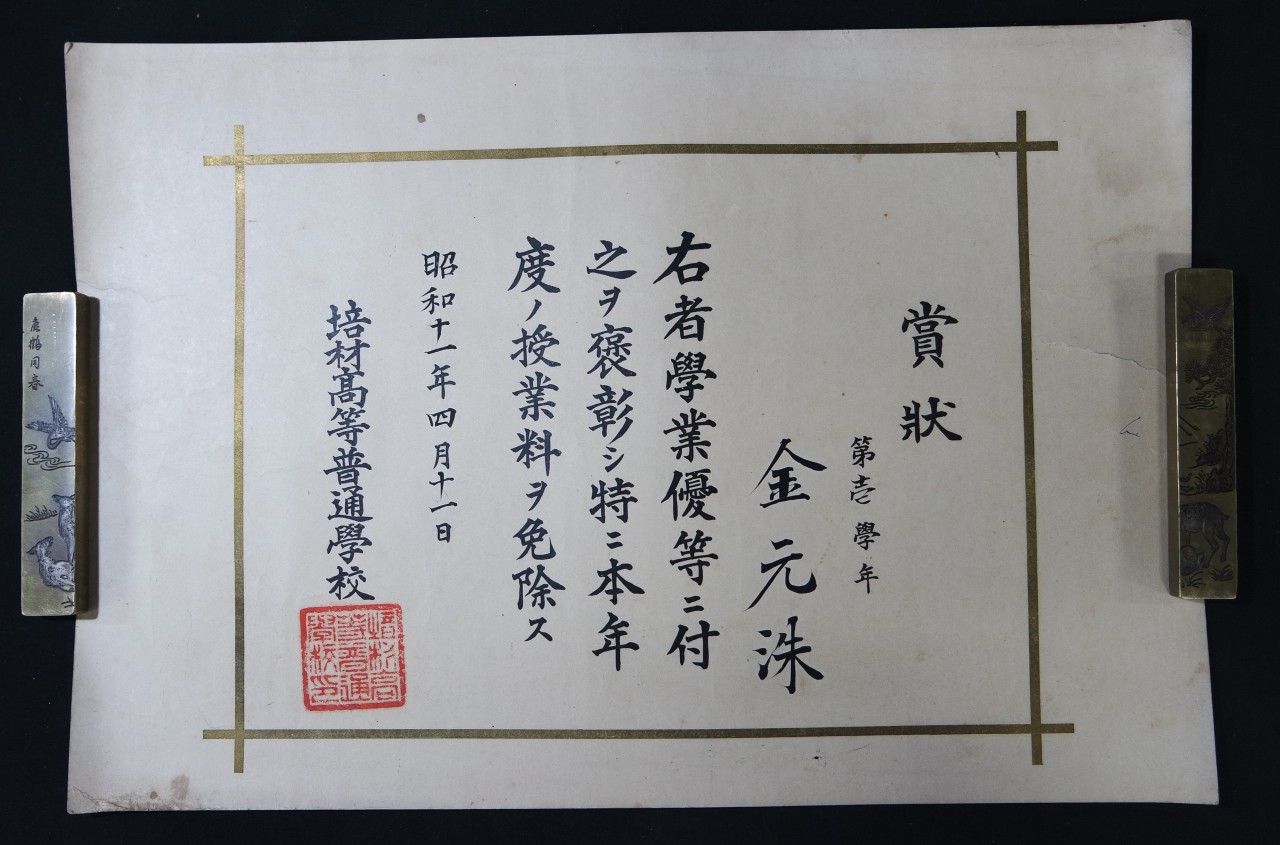 賞狀
第壱學年
金元洙
右者學業優等ニ付
之ヲ褒彰シ特ニ本年
度ノ授業料ヲ免除ス
昭和十一年四月十一日
培材高等普通學校
培材高
等普通
學校印
鹿鶴同春